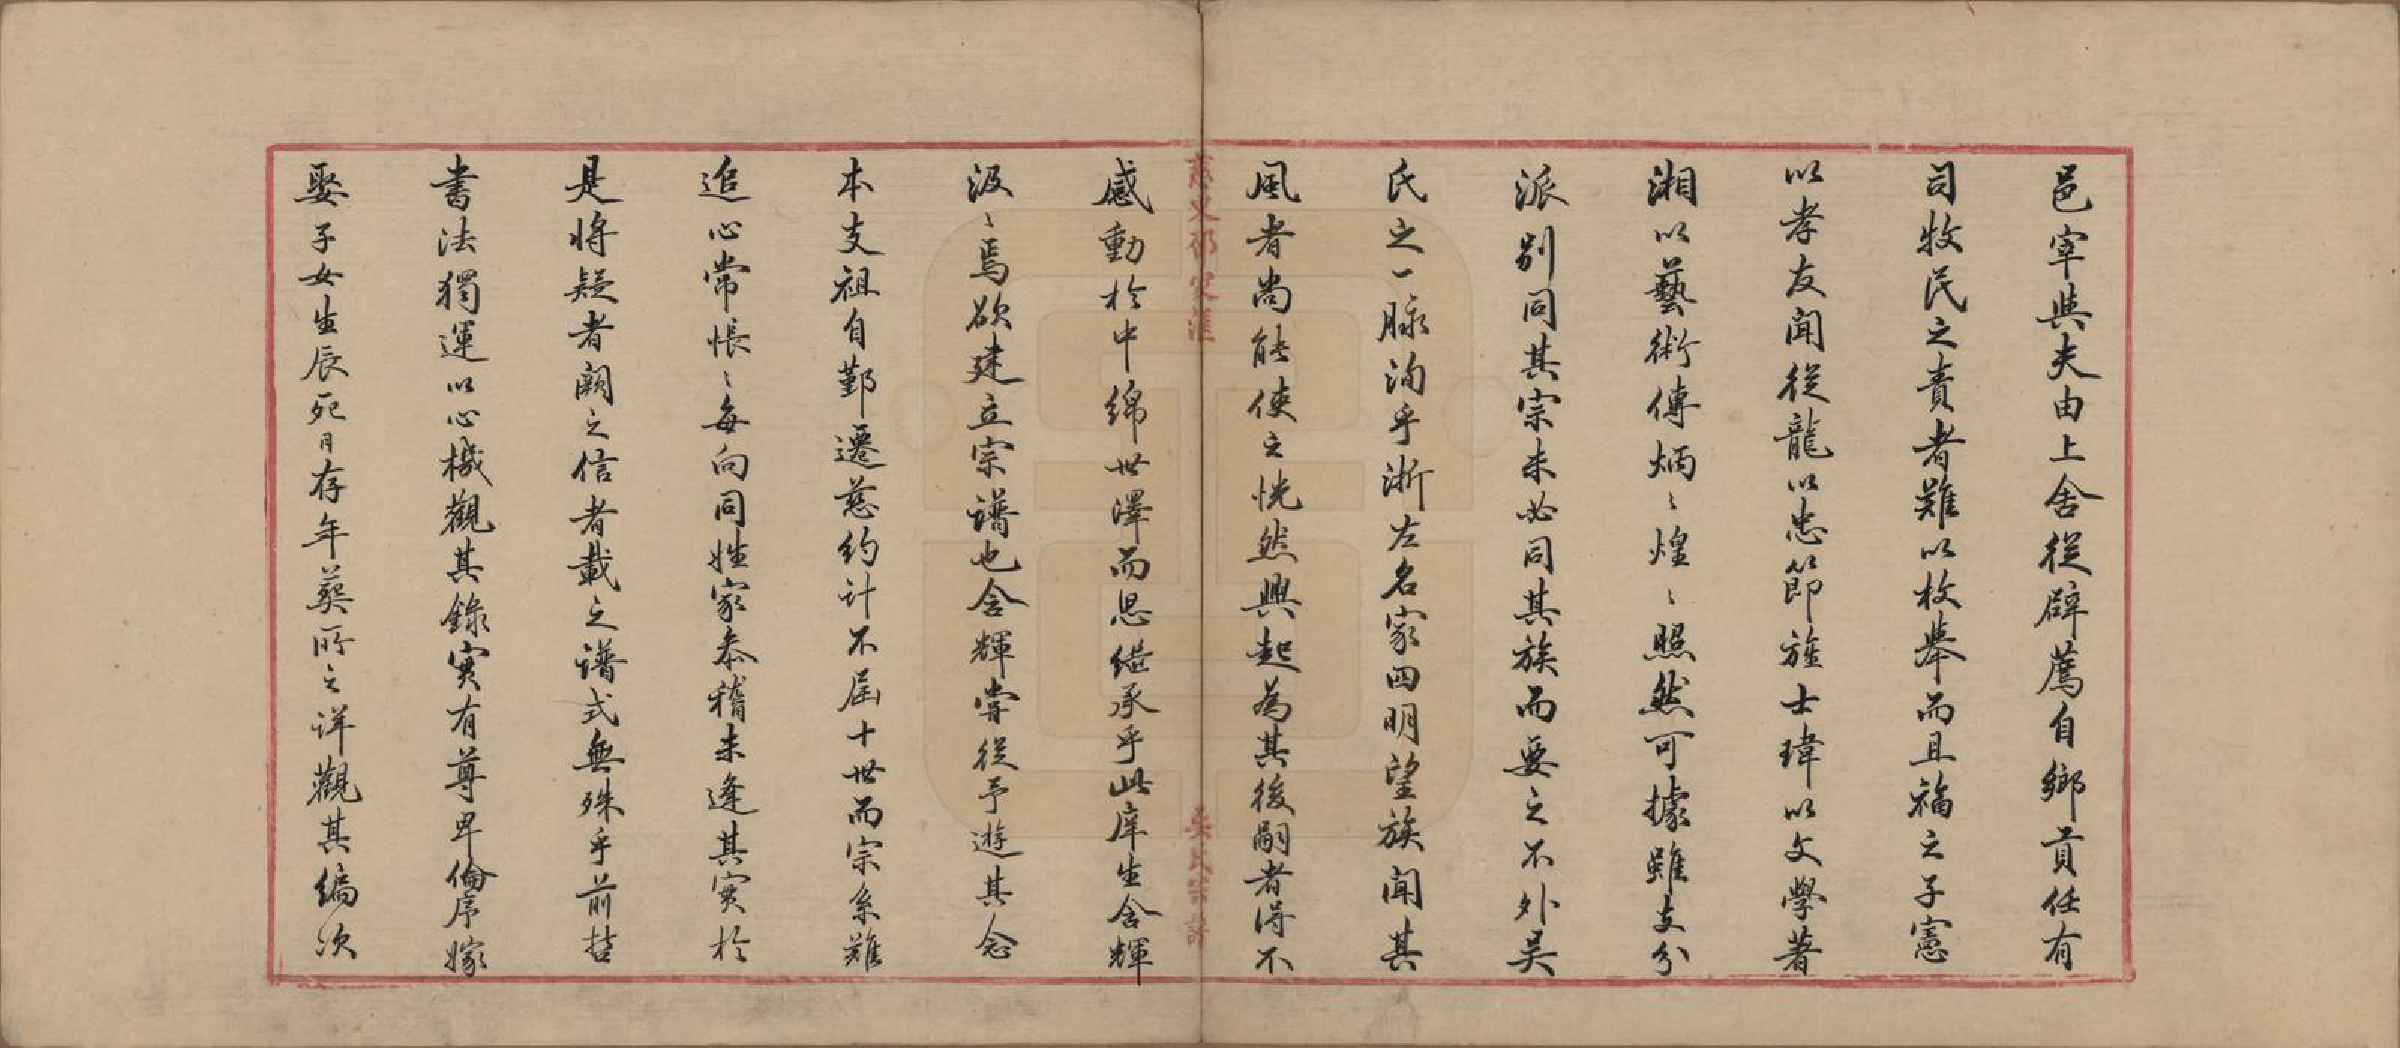 邑宰與夫由上舍從辟薦自鄉貢任有
司牧民之責者難以枚舉而且福之子憲
以孝友聞從龍以忠節旌士瑋以文學著
湘以藝術傳炳〻煌〻照然可據雖支分
派别同其宗未必同其族而要之不外吴
氏之一脉洵乎浙左名家四明望族聞其
風者尚能使之恍然興起為其後嗣者得不
感動於中綿世澤而思继承乎此庠生含輝
汲〻焉欲建立宗譜也含輝嘗從予遊其念
本支祖自鄞遷慈約计不届十世而宗系難
追心常悵〻每向同姓家恭稽未逢其實於
是将疑者闕之信者載之谱式無殊乎前哲
書法獨運以心機觀其錄實有尊卑倫序嫁
娶子女生辰死日存年葬所之详觀其编次
吴氏宗譜